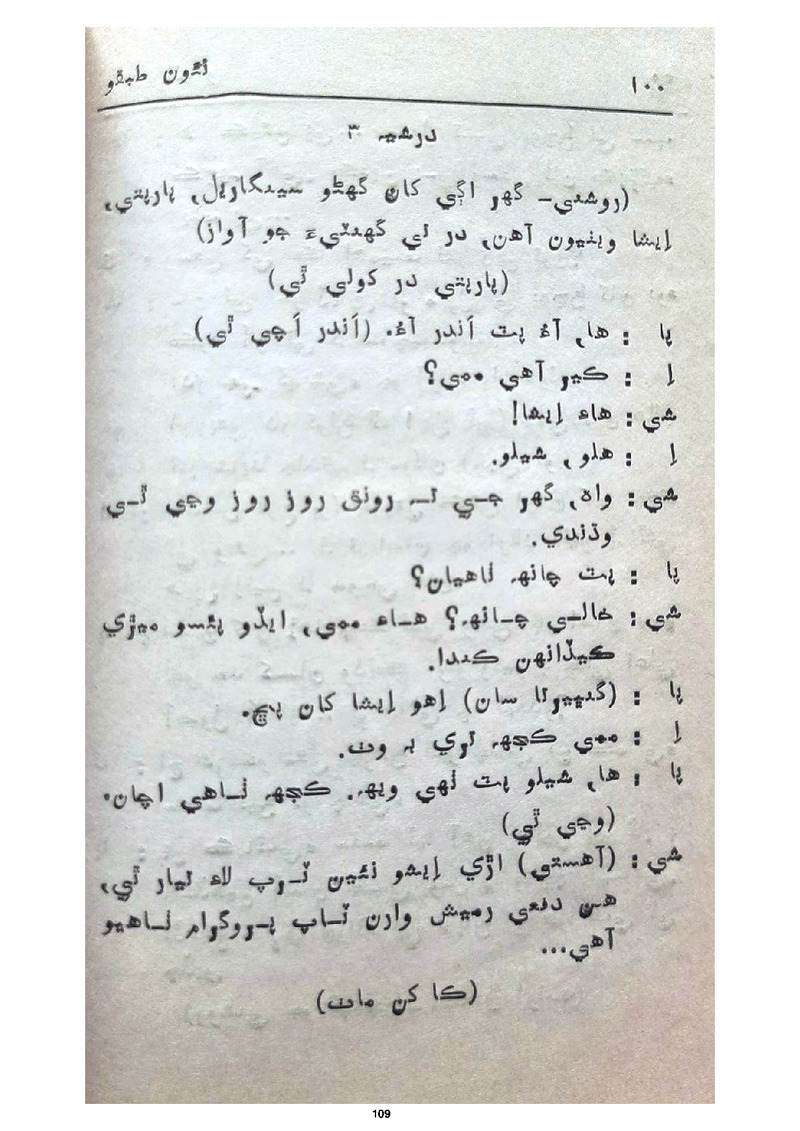 ١٠٠ نئون طبقو
درشيہ ٣
(روشني- گھر اڳي کان گھڻو سينگاريل، پاربتي،
اِيشا ويٺيون آهن، در تي گھنٽيءَ جو آواز)
(پاربتي در کولي ٿي)
پا : ها، آءُ پٽ اَندر آءُ. (اَندر اَچي ٿي)
اِ : ڪير آهي ممي؟
شي : هاءِ اِيشا!
اِ : هلو، شيلو.
شي : واه، گھر جـي تـہ رونق روز روز وڃي ٿـي
وڌندي.
پا : پٽ چانھہ ٺاهيان؟
شي : خالـي چـانھہ؟ هـاءِ ممي، ايڏو پئسو ميڙي
ڪيڏانهن ڪندا.
پا : (گنڀيرتا سان) اِهو اِيشا کان پڇ.
اِ : ممي ڪجھہ تري بہ وٺ.
پا : ها، شيلو پٽ تهي ويھہ. ڪجھہ ٺـاهي اچان.
(وڃي ٿي)
شي : (آهستي) اَڙي اِيشو نئين ٽـرپ لاءِ تيار ٿي،
هـن دفعي رميش وارن ٽـاپ پـروگرام ٺـاهيو
آهي...
(ڪا کن ماٺ)
109